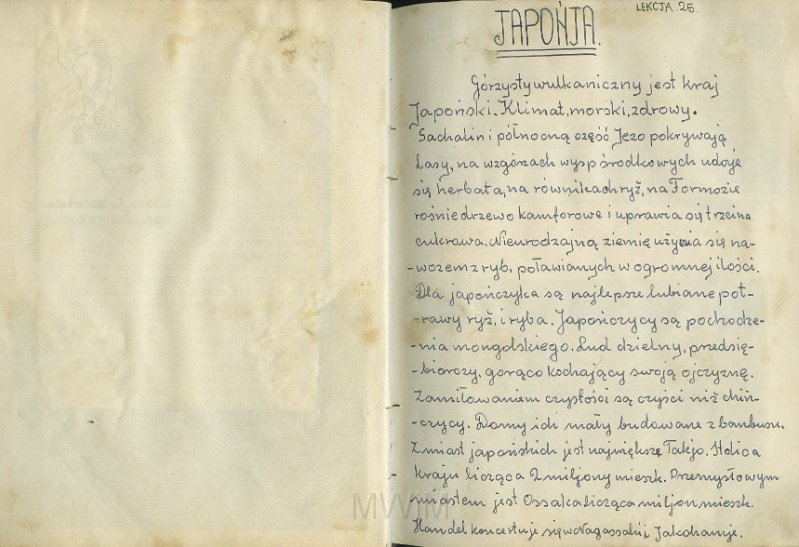 LEKCJA. 25
JAPOŃJA.
Górzysty wulkaniczny jest kraj
Japoński. Klimat, morski, zdrowy.
Sachalin i północną część Jezo pokrywają
lasy, na wzgórzach wysp środkowych udoje
się herbata, na równikach ryż, na Formozie
rośnie drzewo kamforowe i uprawia się trzcina
cukrawa. Nieurodzajną ziemię użyzia się na-
-wozem z ryb, poławianych w ogromnej ilości.
Dla japończyka są najlepsze lubiane pot-
-rawy ryż, i ryba. Japończycy są pochodze-
-nia mongolskiego. Lud dzielny, przedsię-
-biorczy, gorąco kochający swoją ojczyznę.
Zamiłowaniem czystości są czyści niż chiń-
-czycy. Domy ich mały budowane z bambusu.
Z miast japońskich jest największe Takjo. Stolica
kraju licząca 2 miljony mieszk. Przemysłowym
miastem jest Ossaka licząca miljon mieszk.
Handel koncertuje się w Nagassaki i, Jakohamje.
MWM